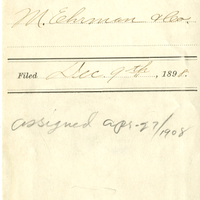 M. Ehrman & Cos.
Filed Dec. 9th, 1898.
assigned apr-27/1908